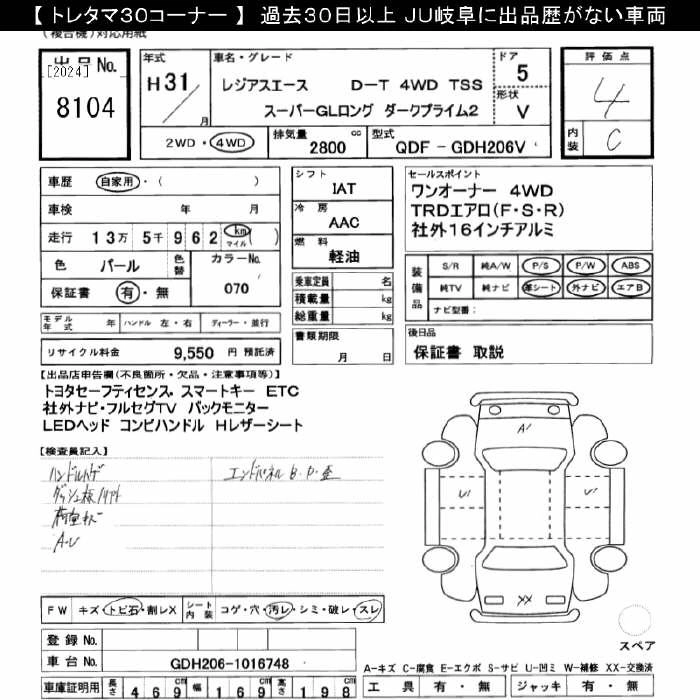 【 トレタマ30コーナー 】 過去30日以上 JU岐阜に出品歴がない車両
(複合機)対応用紙
出品No.
[2024]
8104
年式
H 31
月
車名・グレード
レジアスエース D-T 4WD TSS
スーパーGLロング ダークプライム2
ドア
5
形状
V
2WD・4WD
排気量
2800 cc
型式
QDF - GDH206V
評価点
4
内装
C
車歴 自家用・( )
車検 年 月
走行 13万 5千 9 6 2 km マイル ( )
色 パール 色替 カラーNo.
保証書 有・無 070
モデル年式 年 ハンドル 左・右 ディーラー・並行
リサイクル料金 9,550 円 預託済
シフト
IAT
冷房
AAC
燃料
軽油
乗車定員 名
積載量 kg
総重量 kg
書類期限
月 日
セールスポイント
ワンオーナー 4WD
TRDエアロ(F・S・R)
社外16インチアルミ
装備品
S/R 純A/W P/S P/W ABS
純TV 純ナビ 革シート 外ナビ エアB
ナビ型番:
後日品
保証書 取説
【出品店申告欄(不良箇所・欠品・注意事項等)】
トヨタセーフティセンス スマートキー ETC
社外ナビ・フルセグTV バックモニター
LEDヘッド コンビハンドル Hレザーシート
【検査員記入】
A・U
エンドパネル B・P・歪
A1
U1 U1
XX
FW キズ・トビ石・割レX シート内装 コゲ・穴・汚レ・シミ・破レ・スレ
登録No.
車台No. GDH206-1016748
車庫証明用 長さ 469 幅 169 高さ 198
スペア
A-キズ C-腐食 E-エクボ S-サビ U-凹ミ W-補修 XX-交換済
工具 有・無 ジャッキ 有・無